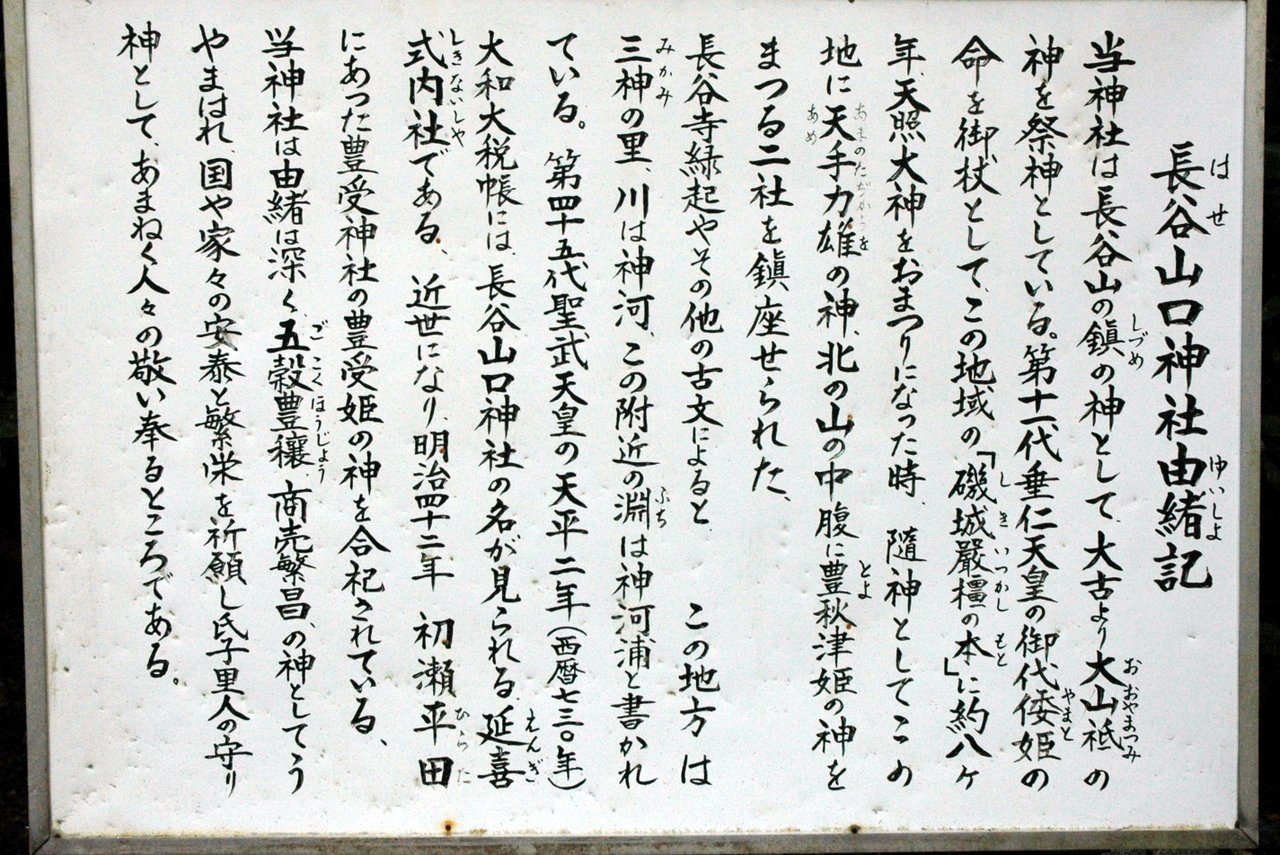 長谷山口神社由緒記
当神社は長谷山の鎮の神として、大古より大山祗の
神を祭神としている。第十一代垂仁天皇の御代倭姫の
命を御杖として、この地域の「磯城嚴橿の本」に約八ヶ
年、天照大神をおまつりになった時、随神としてこの
地に天手力雄の神、北の山の中腹に豊秋津姫の神を
まつる二社を鎮座せられた、
長谷寺緑起やその他の古文によると、この地方は
三神の里、川は神河、この附近の淵は神河浦と書かれ
ている。第四十五代聖武天皇の天平二年(西暦七三〇年)
大和大税帳には、長谷山口神社の名が見られる、延喜
式内社である、近世になり、明治四十二年 初瀬平田
にあった豊受神社の豊受姫の神を合祀されている、
当神社は由緒は深く、五穀豊穰、商売繁昌、の神としてう
やまはれ、国や家々の安泰と繁栄を祈願し氏子里人の守り
神として、あまねく人々の敬い奉るところである。